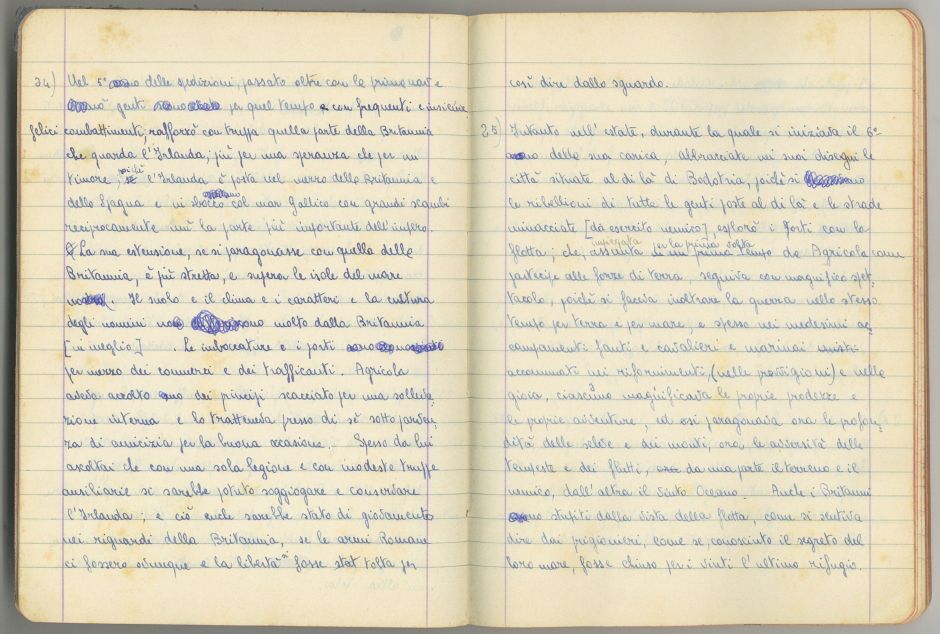 24) Nel 5° anno delle spedizioni, passato oltre con la prima nave e
genti per quel tempo e con frequenti e insieme
felici combattimenti, rafforzò con truppa quella parte della Britannia
che guarda l'Irlanda, più per una speranza che per un
timore, poiché l'Irlanda è posta nel mezzo della Britannia e
della Spagna e in sbocco col mar Gallico con grandi scambi
reciprocamente unì la parte più importante dell'impero.
La sua estensione, se si paragonasse con quella della
Britannia, è più stretta, e supera le isole del mare
nostro. Il suolo e il clima e i caratteri e la cultura
degli uomini non molto dalla Britannia
[in meglio] . Le imboccature e i porti
per mezzo dei commerci e dei trafficanti. Agricola
aveva accolto uno dei principi scacciato per una solleva-
zione interna e lo tratteneva presso di sè sotto parven-
za di amicizia per la buona occasione. Spesso da lui
ascoltai che con una sola legione e con modeste truppe
ausiliarie si sarebbe potuto soggiogare e conservare
l'Irlanda; e ciò anche sarebbe stato di giovamento
nei riguardi della Britannia, se le armi Romane
ci fossero ovunque e la libertà fosse tolta per
così dire dallo sguardo.
25) Intanto nell'estate, durante la quale si iniziava il 6°
anno della sua carica, abbracciate nei suoi disegni le
città situate al di là di Bodotria, poiché si
le ribellioni di tutte le genti poste al di là e le strade
minacciate [da esercito nemico], esplorò i porti con la
flotta; che, impiegata per la prima volta da Agricola come
partecipe alle forze di terra seguiva con magnifico spet-
tacolo, poiché si faceva inoltrare la guerra nello stesso
tempo per terra e per mare, e spesso nei medesimi ac-
campamenti fanti e cavalieri e marinai misti
accomunati nei rifornimenti, (nelle provvigioni) e nella
gioia, ciascuno magnificava le proprie prodezze e
le proprie avventure, ed essi paragonava ora le profon-
dità delle selve e dei monti, ora le avversità delle
tempeste e dei flutti, da una parte il terreno e il
nemico, dall'altra il vinto Oceano. Anche i Britanni
stupiti dalla vista della flotta, come si sentiva
dire dai prigionieri, come se, conosciuto il segreto del
loro mare, fosse chiuso per i vinti l'ultimo rifugio.